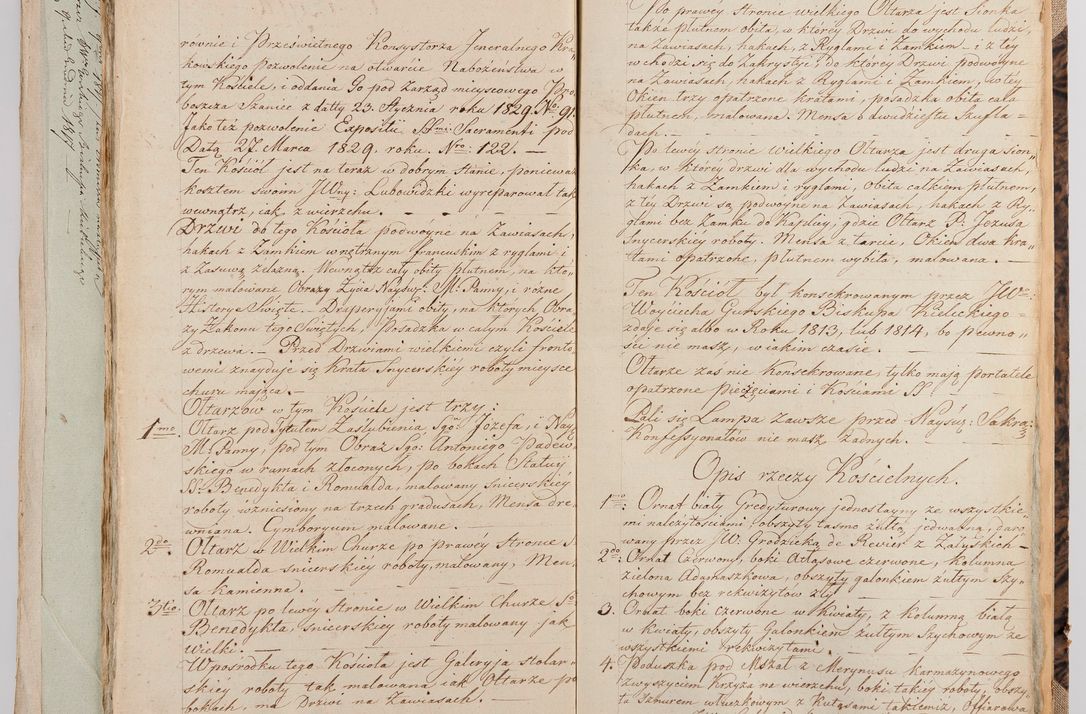 równie i Prześwietnego Konsystorza Jeneralnego Kra
kowskiego Pozwolenie na otwarcie Nabożeństwa w
tym Kościele, i oddania Go pod Zarząd miejscowego Pro
boszcza Szaniec z datty 23. Stycznia roku 1829. No. 91.
Jako też pozwolenie Expositii SSmi: Sacramenti pod
Datą 27 Marca 1829 roku. Nro: 122. —
Ten Kościół jest na teraz w dobrym stanie, ponieważ
kosztem swoim JWny: Lubowidzki wyreparował tak
wewnątrz, iak z wierzchu. — — — — —
Drzwi do tego Kościoła podwoyne na Zawiasach,
hakach z Zamkiem wnętrznym francuskim z ryglami i
z Zasuwą żelazną. Wewnątrz cały obity płutnem, na któ„
rym malowane Obrazy Życia Nayśw: M: Panny, i rożne
Historye Święte. Draperyjami obity, na których Obra„
zy Zakonu tego Świętych, Posadzka w całym Kościele
z drzewa. — Przed Drzwiami wielkiemi czyli fronto„
wemi znayduje się Krata Snycerskiey roboty mieysce
churu mająca. —
Ołtarzów w tym Kościele jest trzy:
1mo. Ołtarz pod Tytułem Zaślubienia Sgo: Józefa, i Nay:
M: Panny, pod tym Obraz Sgo: Antoniego Padew„
skiego w ramach złoconych, po bokach Statuy
SS: Benedykta i Romualda, malowany Snicerskiey
roboty wzniesiony na trzech gradusach, Mensa dre„
wniana. Cymboryum malowane. —
2do. Ołtarz w Wielkim Churze po prawéy Stronie S
Romualda snicerskiey roboty, malowany, Men„
sa kamienna. —
3tio. Ołtarz po lewéy Stronie w Wielkim Churze So:
Benedykta, snicerskiey roboty malowany jak
Wielki. —
Wposrodku tego Kościoła jest Galeryja stolar„
skiéy roboty tak malowana iak Ołtarze po
bokach, ma Drzwi na Zawiasach. —
Po prawéy stronie wielkiego Ołtarza jest Sionka
także płutnem obita, w któréy Drzwi do wychodu ludzi,
na Zawiasach, hakach, z Ryglami i Zamkiem — i z tey
wchodzi się do Zakrystyi, do któréy Drzwi podwoyne
na Zawiasach hakach z Ryglami i Zamkiem, w téy
Okien trzy opatrzone kratami, posadzka obita cała
płutnem, malowana. Mensa o dwudziestu Szufla„
dach. —
Po lewéy stronie Wielkiego Ołtarza jest druga sion„
ka, w któréy drzwi dla wychodu ludzi na Zawiasach,
hakach z Zamkiem i ryglami, Obita całkiem płutnem,
z tey Drzwi są podwoyne na Zawiasach, hakach z Ry„
glami bez Zamku do Kaplicy, gdzie Ołtarz P: Jezusa
Snycerskiey roboty. Mensa z tarcic, Okien dwa kra„
tami opatrzone, płutnem wybita, malowana. —
Ten Kościół był konsekrowanym przez JWo:
Woyciecha Gurskiego Biskupa Kieleckiego —
zdaje się albo w Roku 1813, lub 1814, bo pewno„
ści nie masz, w iakim czasie. —
Ołtarze zaś nie konsekrowane, tylko mają portatele
opatrzone pieczęciami i Kościami SS
Pali się Lampa zawsze przed Nayśw: Sakra:
Konfessyonałów nie masz żadnych.
Opis rzeczy Kościelnych.
1mo: Ornat biały Gredyturowy jednostayny ze wszystkie„
mi należytościami, obszyty tasmą żółtą jedwabną, daro„
wany przez JW: Grodzicką de Revier z Załuskich —
2do: Ornat Czerwony, boki Atłasowe czerwone, kolumna
zielona Adamaszkowa, obszyty galonkiem żółtym Szy„
chowym bez rekwizytów zły —
3. Ornat boki czerwone w kwiaty, z kolumną białą
w kwiaty, obszyty Galonkiem żółtym Szychowym ze
wszystkiemi rekwizytami. —
4. Poduszka pod Mszał z Merynusu karmazynowego
z wyszyciem Krzyża na wierzchu, boki takiéy roboty, obszy„
ta Sznurem włuczkowym z Kutasami takiemiż, Offiarowa